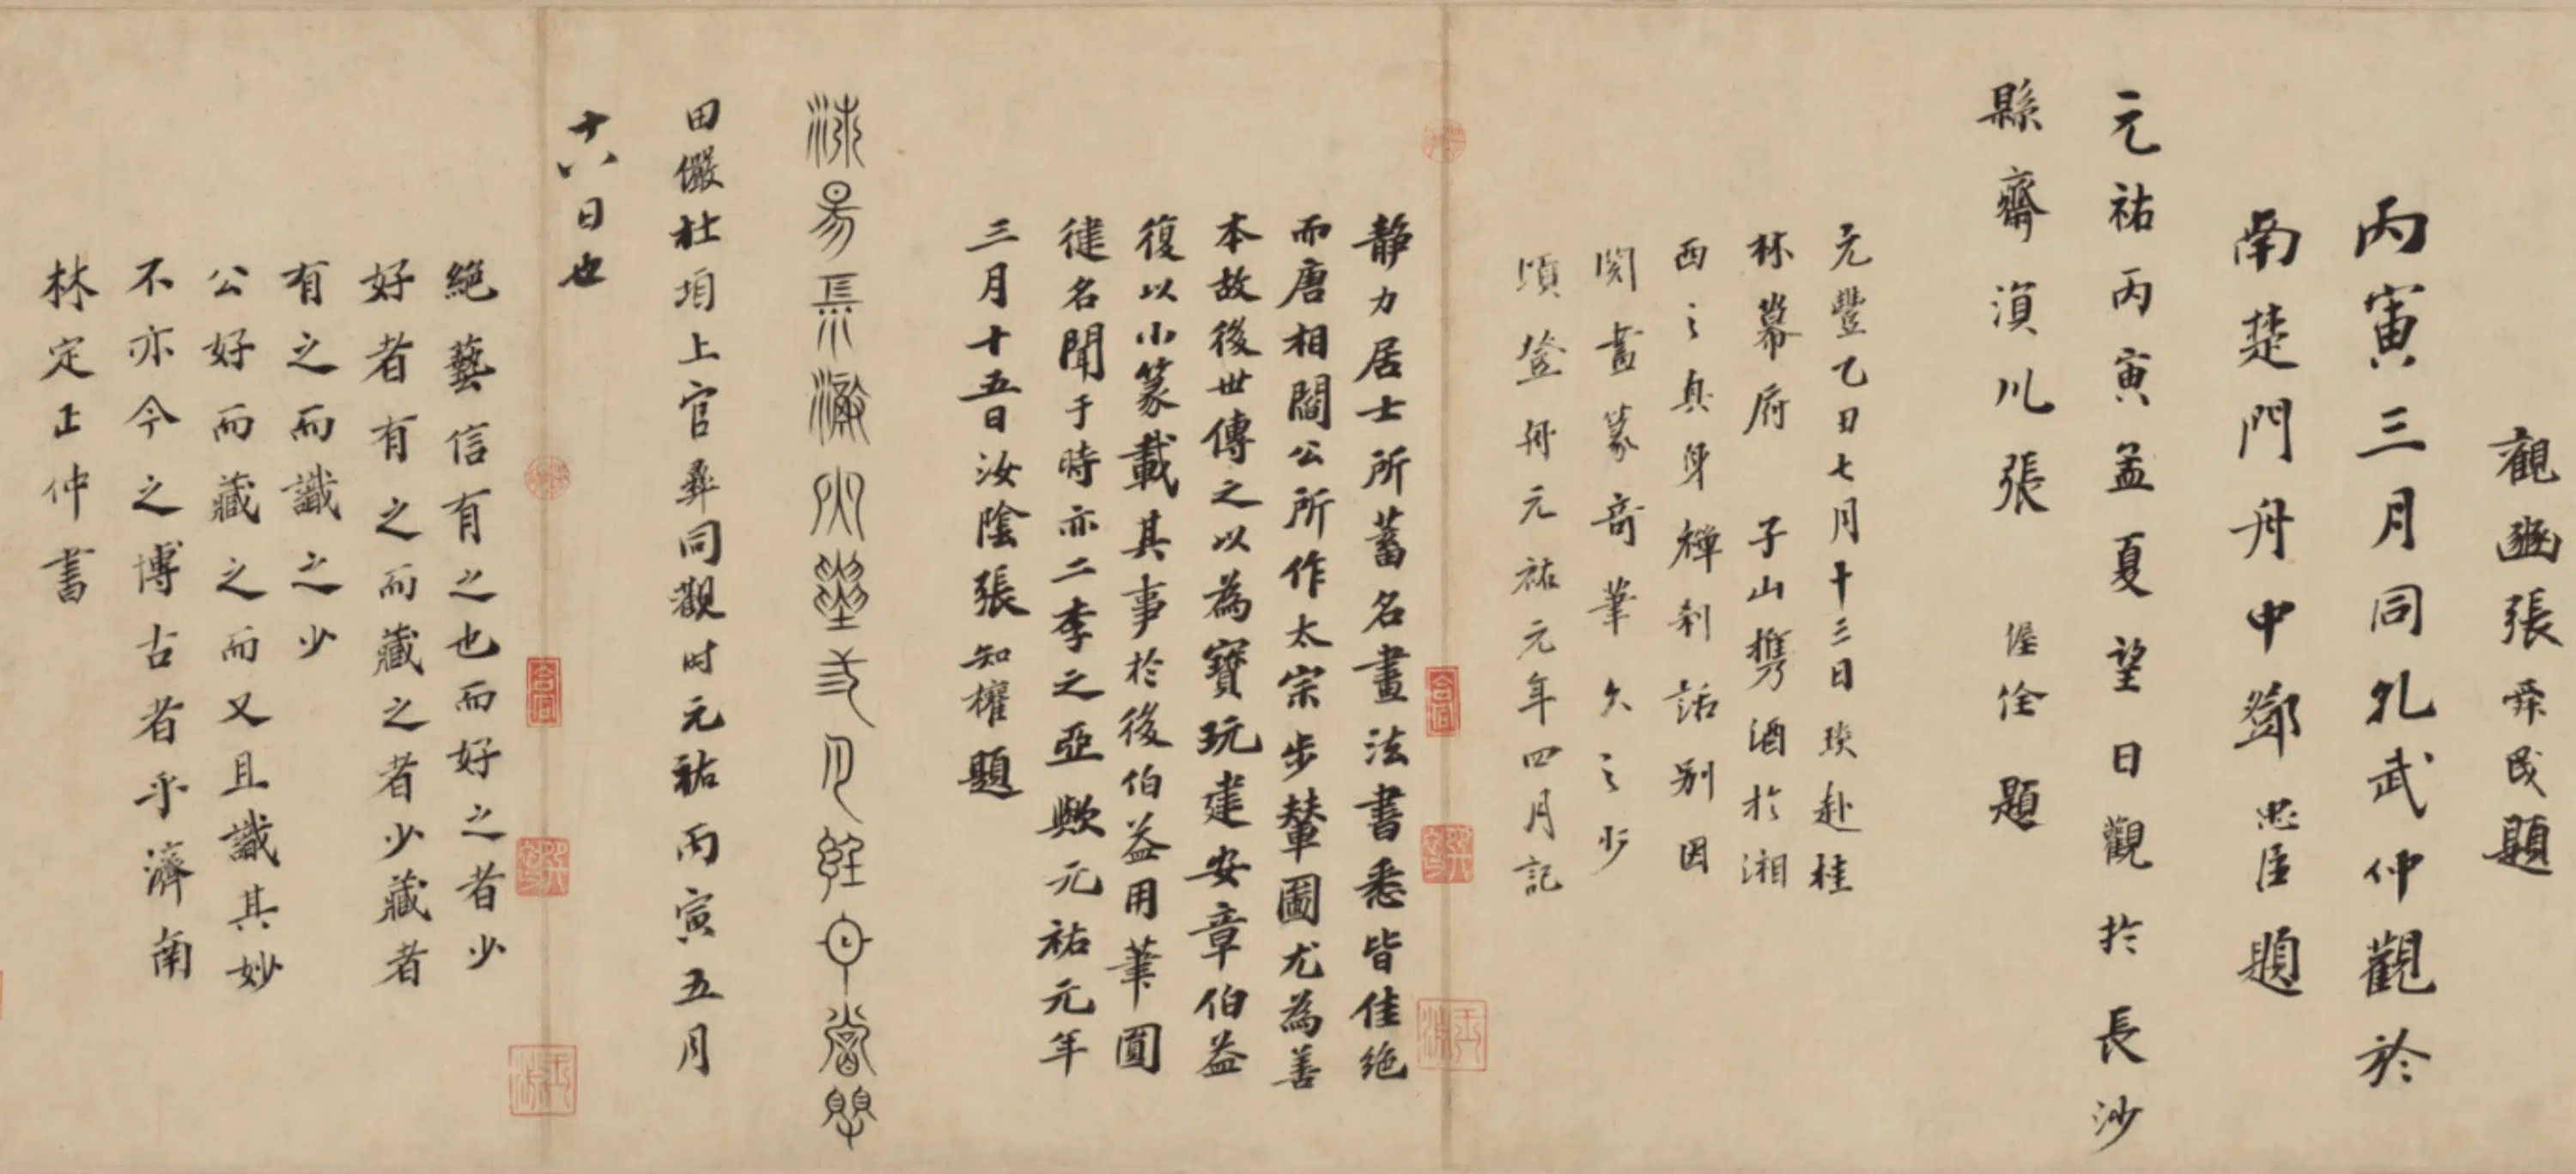 觀 豳張舜民題
丙寅三月同孔武仲觀於
南楚門舟中鄧忠臣題
元祐丙寅孟夏望日觀於長沙
縣齋湞川張
題
元豐乙丑七月十三日 赴桂
林幕府 子山攜酒於湘
西之真身禪刹話別因
閱畫篆奇筆久之
頃登舟元祐元年四月記
静力居士所蓄名畫法書悉皆佳絶
而唐相閻公所作太宗步輦圖尤為善
本故後世傳之以為寶玩建安章伯益
復以小篆載其事於後伯益用筆圓
健名聞于時亦二李之亞歟元祐元年
三月十五日汝陰張知權題
田儼杜垍上官彝同觀时元祐丙寅五月
十八日也
絶藝信有之也而好之者少
好者有之而藏之者少藏者
有之而識之少
公好而藏之而又且識其妙
不亦今之博古者乎濟南
林定正仲書